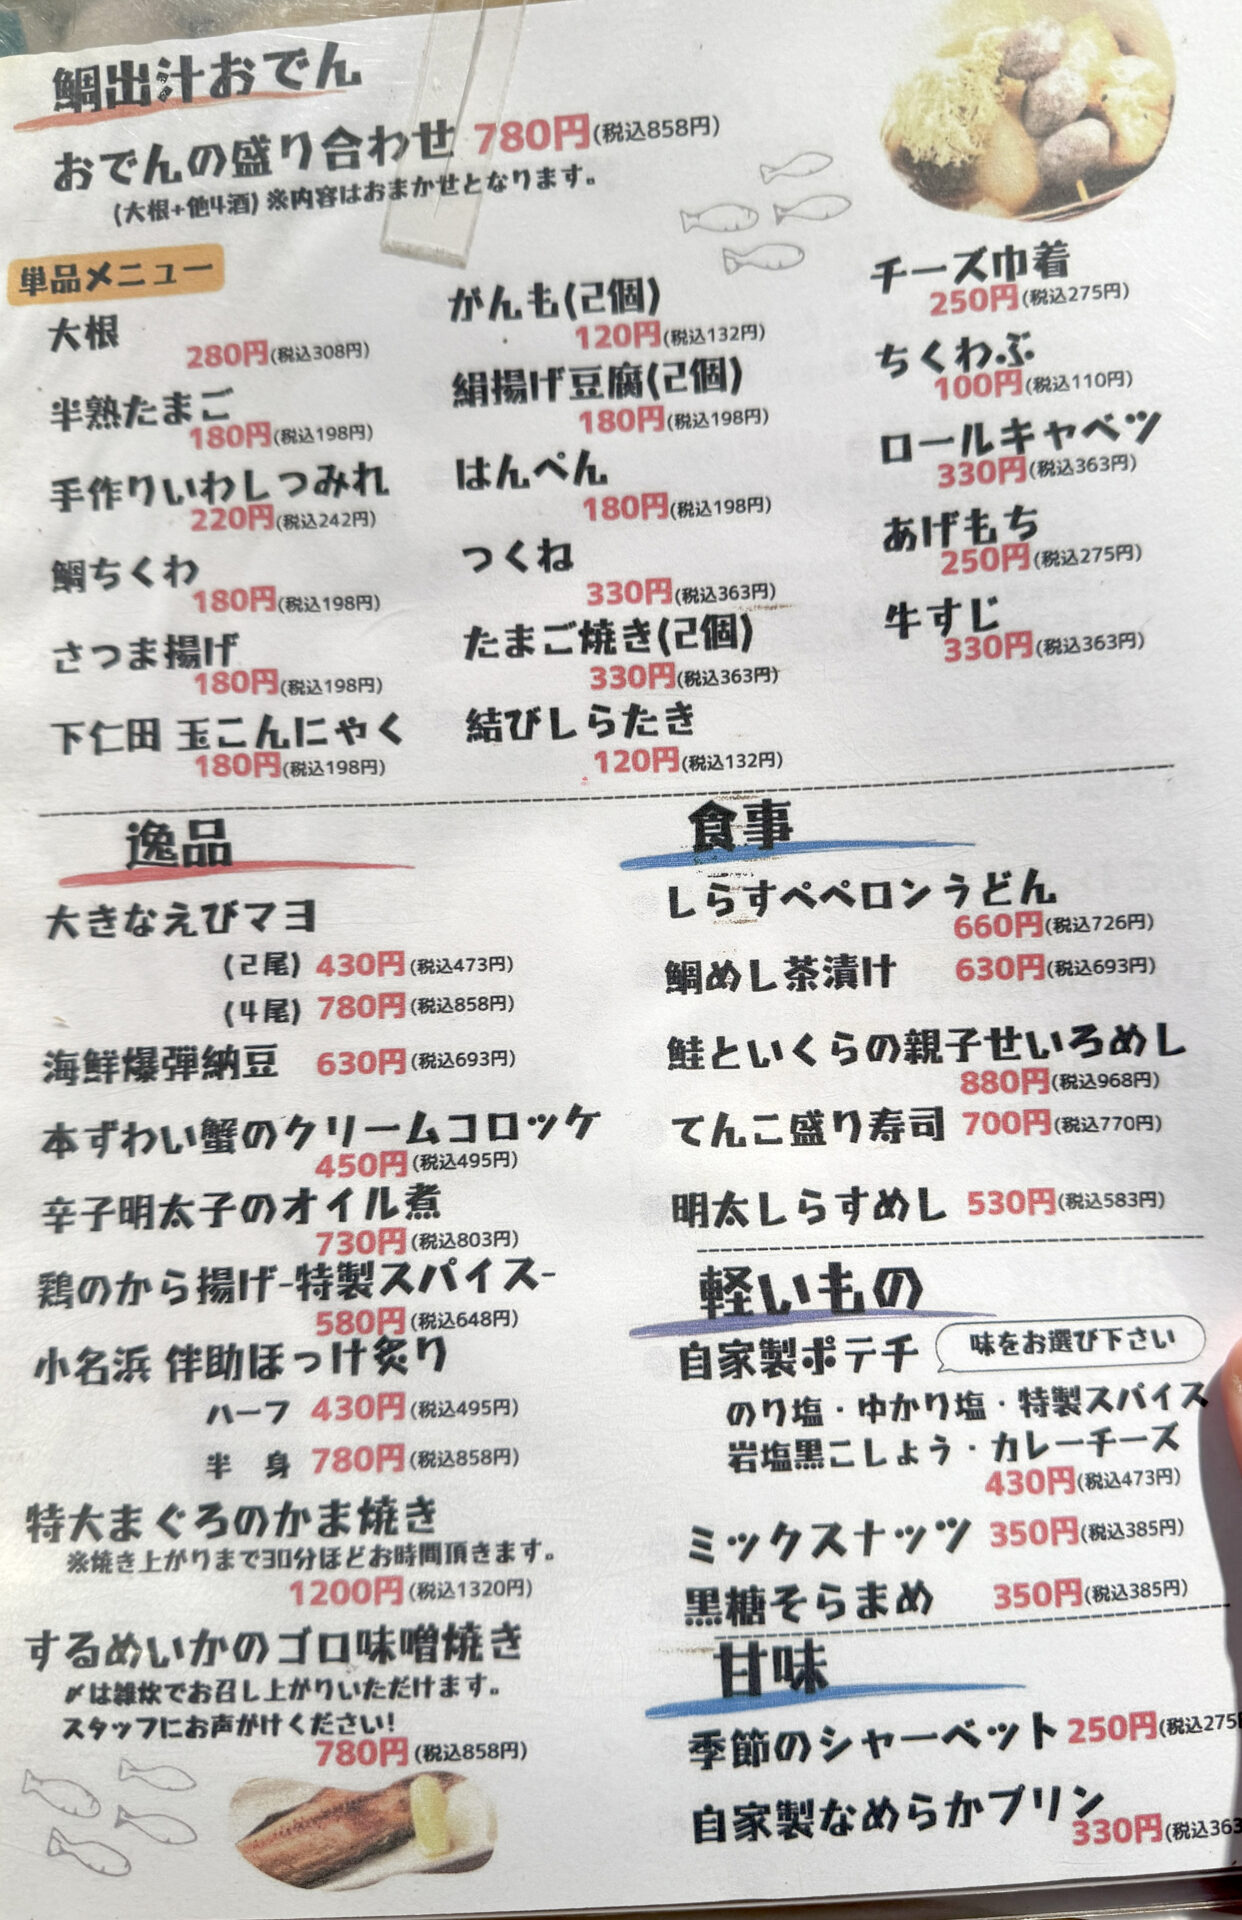 鯛出汁おでん
おでんの盛り合わせ 780円(税込858円)
(大根+他4酒) ※内容はおまかせとなります。
単品メニュー
大根
280円(税込308円)
半熟たまご
180円(税込198円)
手作りいわしつみれ
220円(税込242円)
鯛ちくわ
180円(税込198円)
さつま揚げ
180円(税込198円)
下仁田 玉こんにゃく
180円(税込198円)
がんも(2個)
120円(税込132円)
絹揚げ豆腐(2個)
180円(税込198円)
はんぺん
180円(税込198円)
つくね
330円(税込363円)
たまご焼き(2個)
330円(税込363円)
結びしらたき
120円(税込132円)
チーズ巾着
250円(税込275円)
ちくわぶ
100円(税込110円)
ロールキャベツ
330円(税込363円)
あげもち
250円(税込275円)
牛すじ
330円(税込363円)
逸品
大きなえびマヨ
(2尾) 430円(税込473円)
(4尾) 780円(税込858円)
海鮮爆弾納豆 630円(税込693円)
本ずわい蟹のクリームコロッケ
450円(税込495円)
辛子明太子のオイル煮
730円(税込803円)
鶏のから揚げ-特製スパイス-
580円(税込648円)
小名浜 伴助ほっけ炙り
ハーフ 430円(税込495円)
半 身 780円(税込858円)
特大まぐろのかま焼き
※焼き上がりまで30分ほどお時間頂きます。
1200円(税込1320円)
するめいかのゴロ味噌焼き
〆は雑炊でお召し上がりいただけます。
スタッフにお声がけください!
780円(税込858円)
食事
しらすペペロンうどん
660円(税込726円)
鯛めし茶漬け 630円(税込693円)
鮭といくらの親子せいろめし
880円(税込968円)
てんこ盛り寿司 700円(税込770円)
明太しらすめし 530円(税込583円)
軽いもの
自家製ポテチ 味をお選び下さい
のり塩・ゆかり塩・特製スパイス
岩塩黒こしょう・カレーチーズ
430円(税込473円)
ミックスナッツ 350円(税込385円)
黒糖そらまめ 350円(税込385円)
甘味
季節のシャーベット 250円(税込275
自家製なめらかプリン
330円(税込363